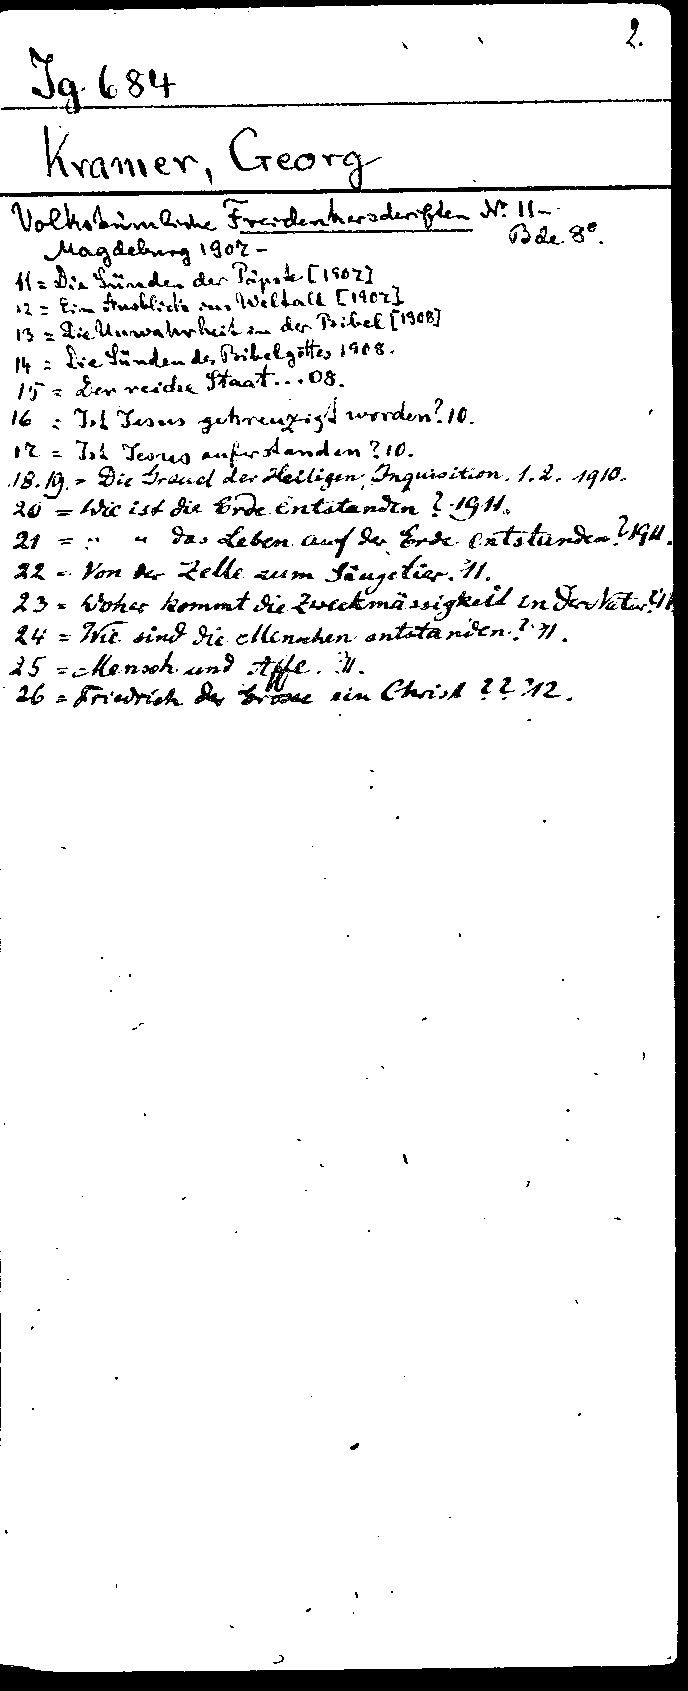 2.
Jg 684
Kramer, Georg
Volkstümliche Freidenkerschriften Nr. 11-
Bde. 8°.
Magdeburg 1907-
11 = Die Sünden der Päpste [1907]
12 = Ein Ausblick ins Weltall [1907]
13 = Die Unwahrheit in der Bibel [1908]
14 = Die Sünden des Bibelgottes 1908.
15 = Der reiche Staat...08.
16 = Ist Jesus gekreuzigt worden? 10.
17 = Ist Jesus auferstanden? 10.
18.19. = Die Greuel der Heiligen Inquisition. 1.2. 1910.
20 = Wie ist die Erde entstanden? 1911.
21 = " " das Leben auf der Erde entstanden? 1911.
22 = Von der Zelle zum Säugetier. '11.
23 = Woher kommt die Zweckmässigkeit in der Natur? '11
24 = Wie sind die Menschen entstanden? '11.
25 = Mensch und Affe. '11.
26 = Friedrich der Grosse ein Christ ?? '12.